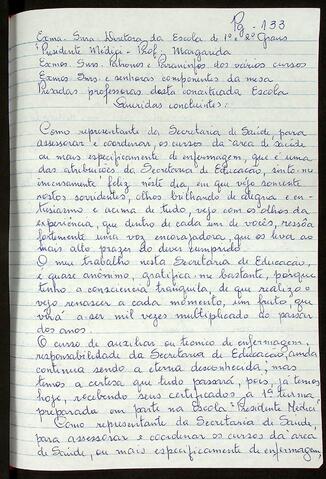 Pg - 133
Exma. Snra. Diretora da Escola de 1º e 2º Graus
"Presidente Médici" - Profª Margarida
Exmos Snrs. Patronos e Paraninfos dos vários cursos
Exmos Snrs. e senhoras componentes da mesa
Prezadas professoras desta conceituada Escola
Queridas concluintes:
Como representante da Secretaria de Saúde, para
assessorar e coordenar, os cursos da área de saúde
ou mais especificamente de enfermagem, que é uma
das atribuições da Secretaria de Educação, sinto-me
imensamente feliz neste dia, em que vejo somente
rostos sorridentes, olhos brilhando de alegria e en-
tusiasmo e acima de tudo, vejo com os olhos da
experiência, que dentro de cada um de vocês, ressôa
fortemente uma voz encorajadora, que os leva ao
mais alto prazer do dever cumprido.
O meu trabalho nesta Secretaria de Educação,
é quase anônimo, gratifica-me bastante, porque
tenho a consciência tranquila, de que realizo e
vejo renascer a cada momento, um fruto, que
virá a ser mil vezes multiplicado ao passar
dos anos.
O curso de auxiliar ou técnico de enfermagem,
responsabilidade da Secretaria de Educação, ainda
continua sendo a eterna desconhecida, mas
temos a certeza que tudo passará, pois, já temos
hoje, recebendo seus certificados, a 1ª turma,
preparada em parte na Escola "Presidente Médici"
Como representante da Secretaria de Saúde,
para assessorar e coordenar os cursos da área
de Saúde, ou mais especificamente de enfermagem,